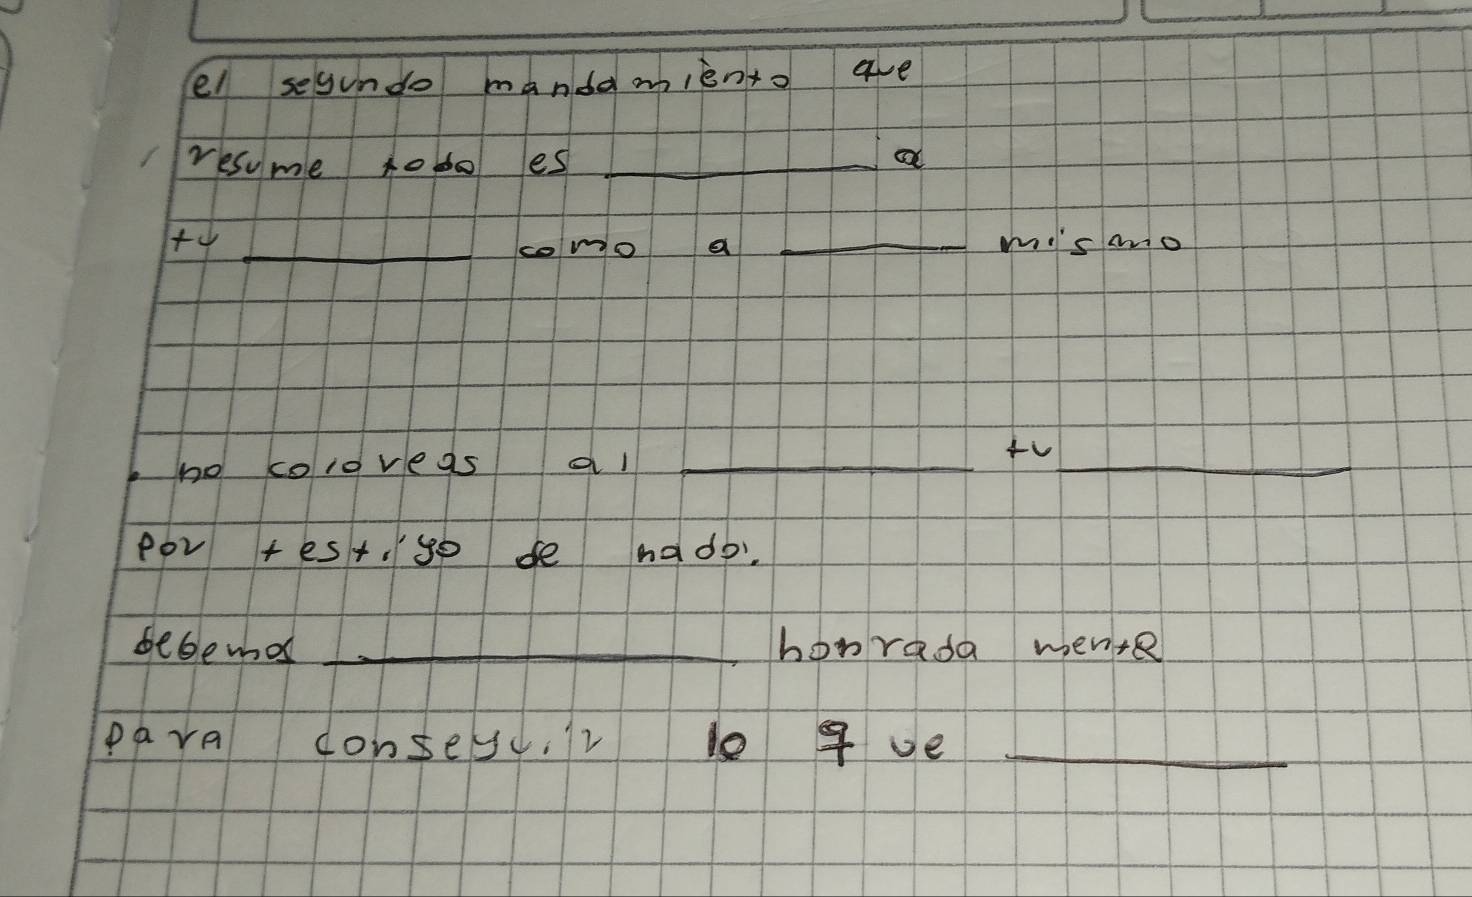 el segundo mandamiento que
resume todo es ________ a
tu ________ como a ________ mismo
no coloveas al ________ tu ________
por testigo de nada.
debemos ________ honrada mente
para conseguir lo que ________